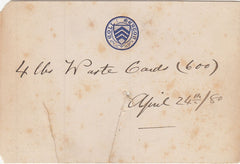 4 lbs Waste Cards (600)
April 24th/80